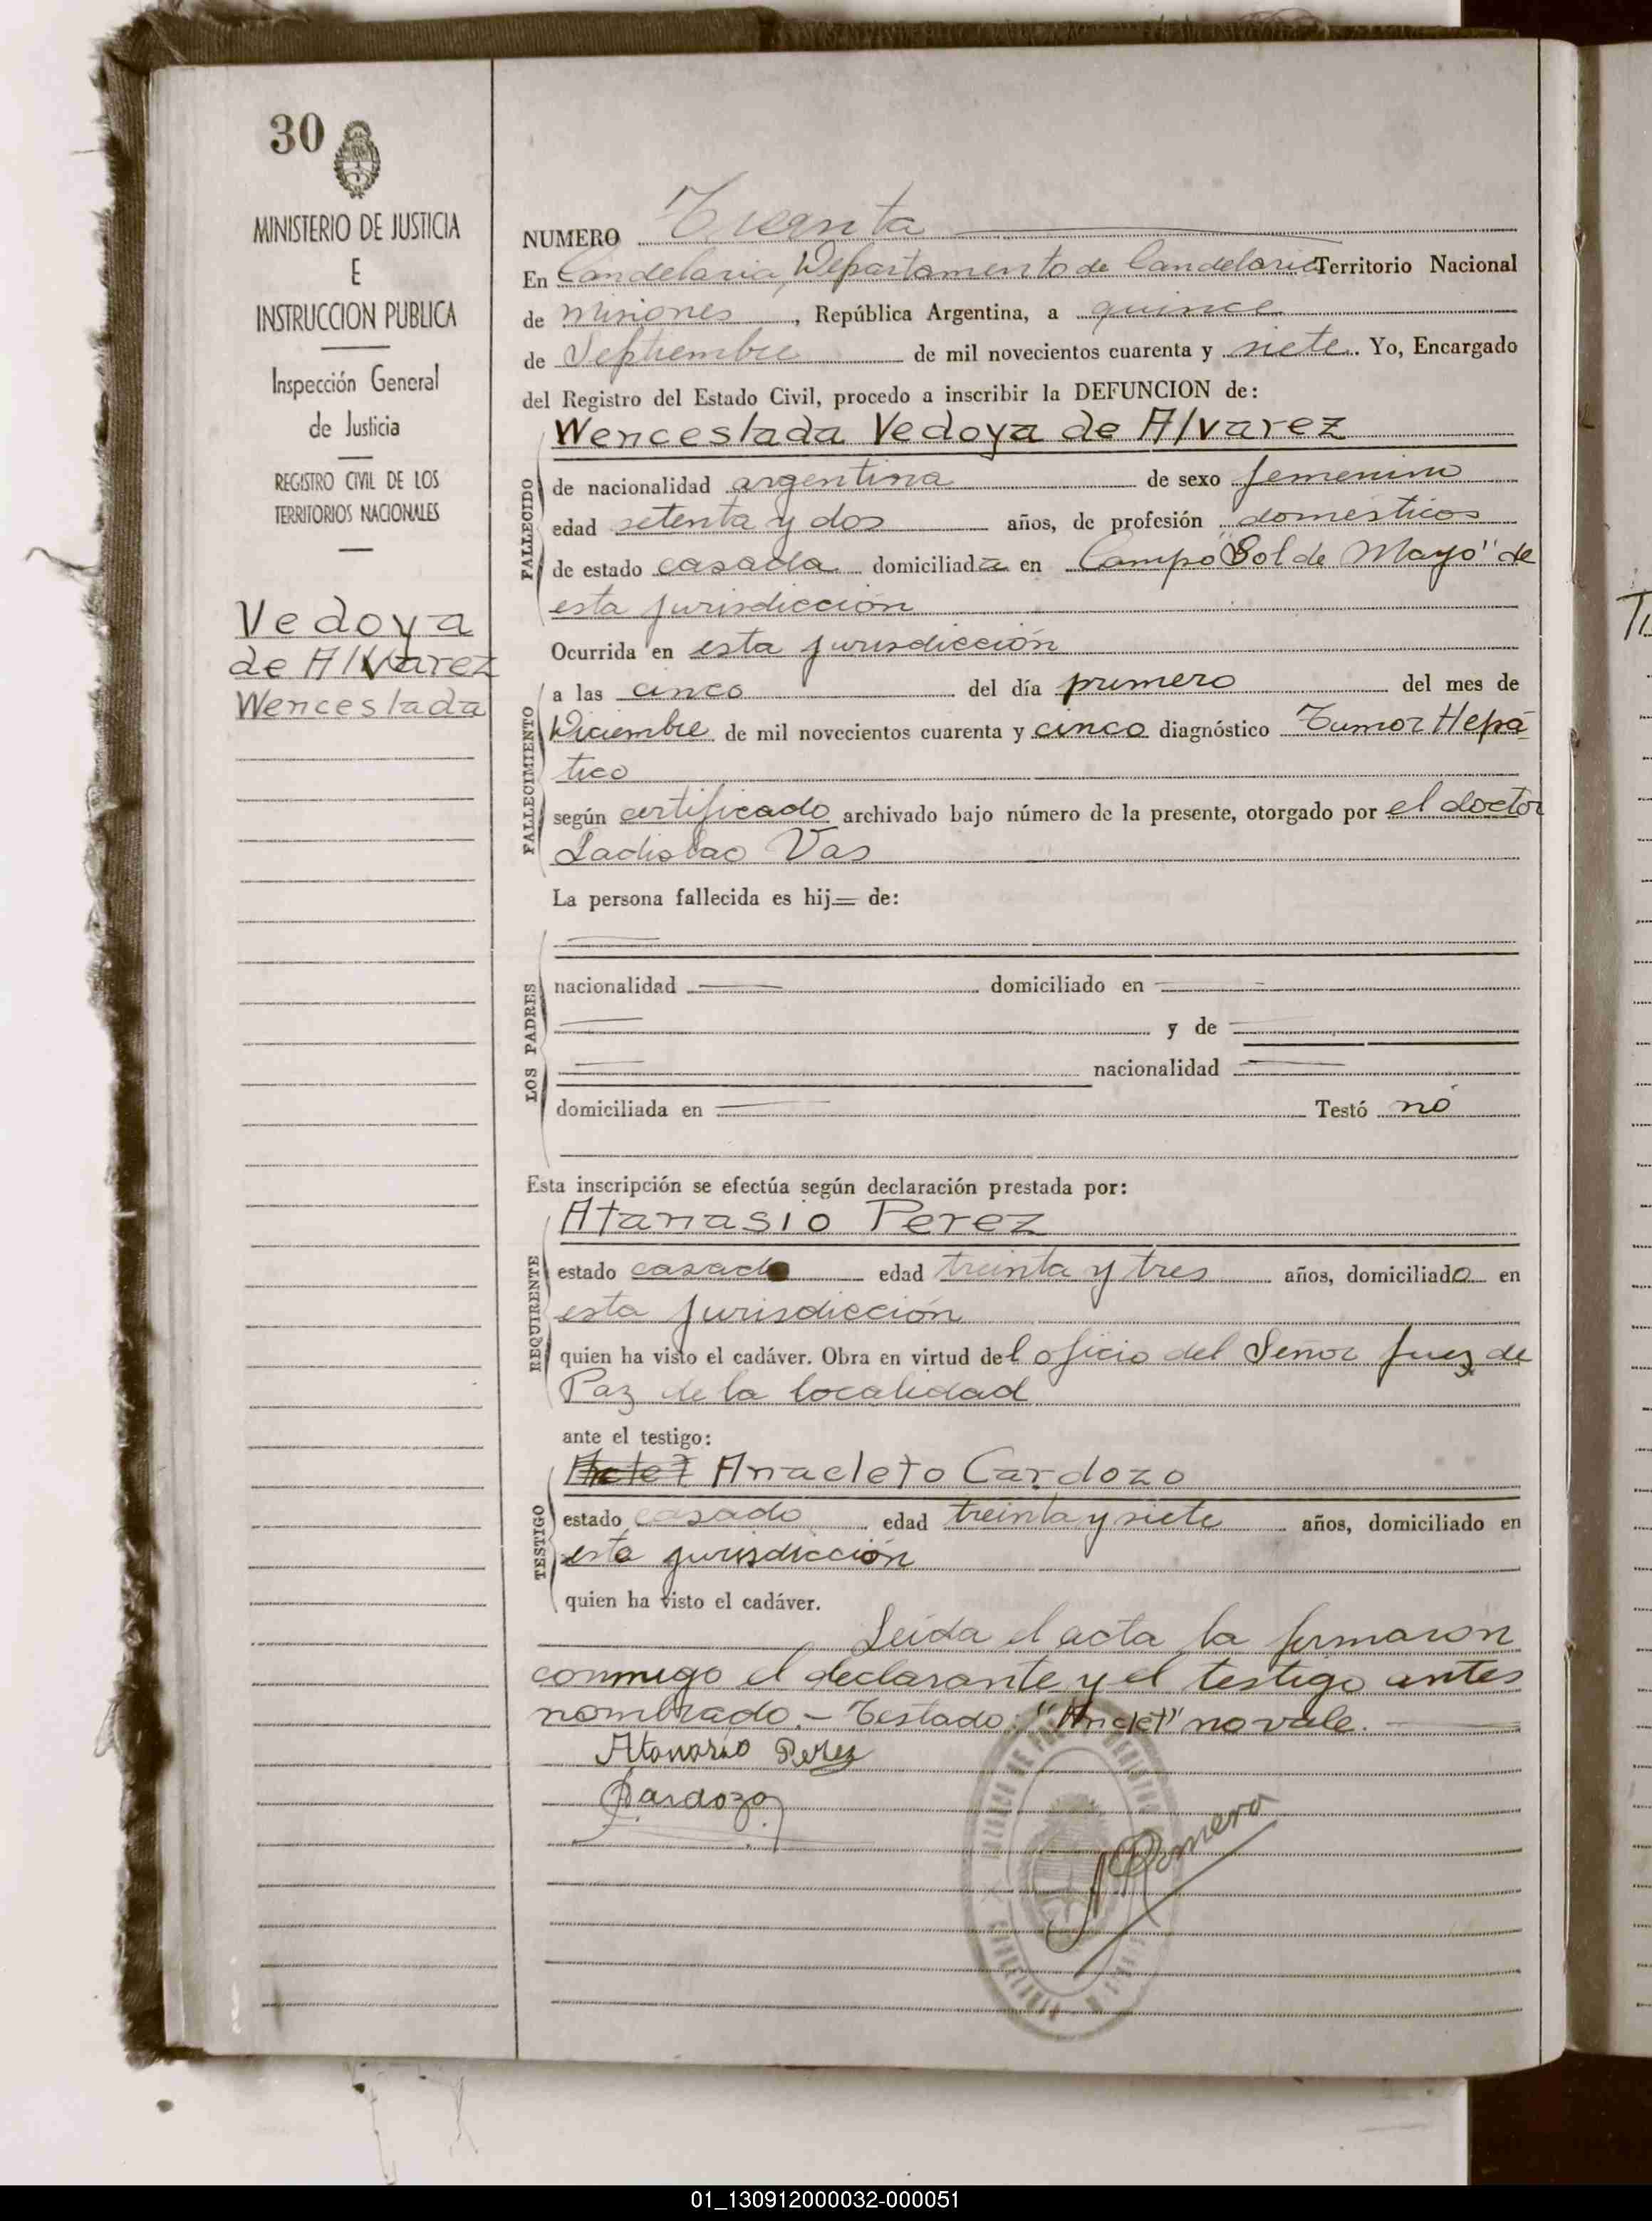 30
MINISTERIO DE JUSTICIA
E
INSTRUCCION PUBLICA
Inspección General
de Justicia
REGISTRO CIVIL DE LOS
TERRITORIOS NACIONALES
Vedoya
de Alvarez
Wenceslada
NUMERO Treinta
En Candelaria, Departamento de Candelaria Territorio Nacional
de Misiones, República Argentina, a quince
de Septiembre de mil novecientos cuarenta y siete. Yo, Encargado
del Registro del Estado Civil, procedo a inscribir la DEFUNCION de:
Wenceslada Vedoya de Alvarez
FALLECIDO
de nacionalidad argentina de sexo femenino
edad setenta y dos años, de profesión domésticos
de estado casada domiciliada en Campo "Sol de Mayo" de
esta jurisdicción
Ocurrida en esta jurisdicción
FALLECIMIENTO
a las cinco del día primero del mes de
Diciembre de mil novecientos cuarenta y cinco diagnóstico Tumor Hepá
tico
según certificado archivado bajo número de la presente, otorgado por el doctor
Ladislao Vas
La persona fallecida es hij= de:
LOS PADRES
nacionalidad domiciliado en
y de
nacionalidad
domiciliada en Testó nó
Esta inscripción se efectúa según declaración prestada por:
Atanasio Perez
REQUIRENTE
estado casado edad treinta y tres años, domiciliado en
esta jurisdicción
quien ha visto el cadáver. Obra en virtud del oficio del Señor Juez de
Paz de la localidad
ante el testigo:
Anacleto Cardozo
TESTIGO
estado casado edad treinta y siete años, domiciliado en
esta jurisdicción
quien ha visto el cadáver.
Leída el acta la firmaron
conmigo el declarante y el testigo antes
nombrado.- Testado: "Anclet" no vale.
Atanasio Perez
Cardozo
01_130912000032-000051